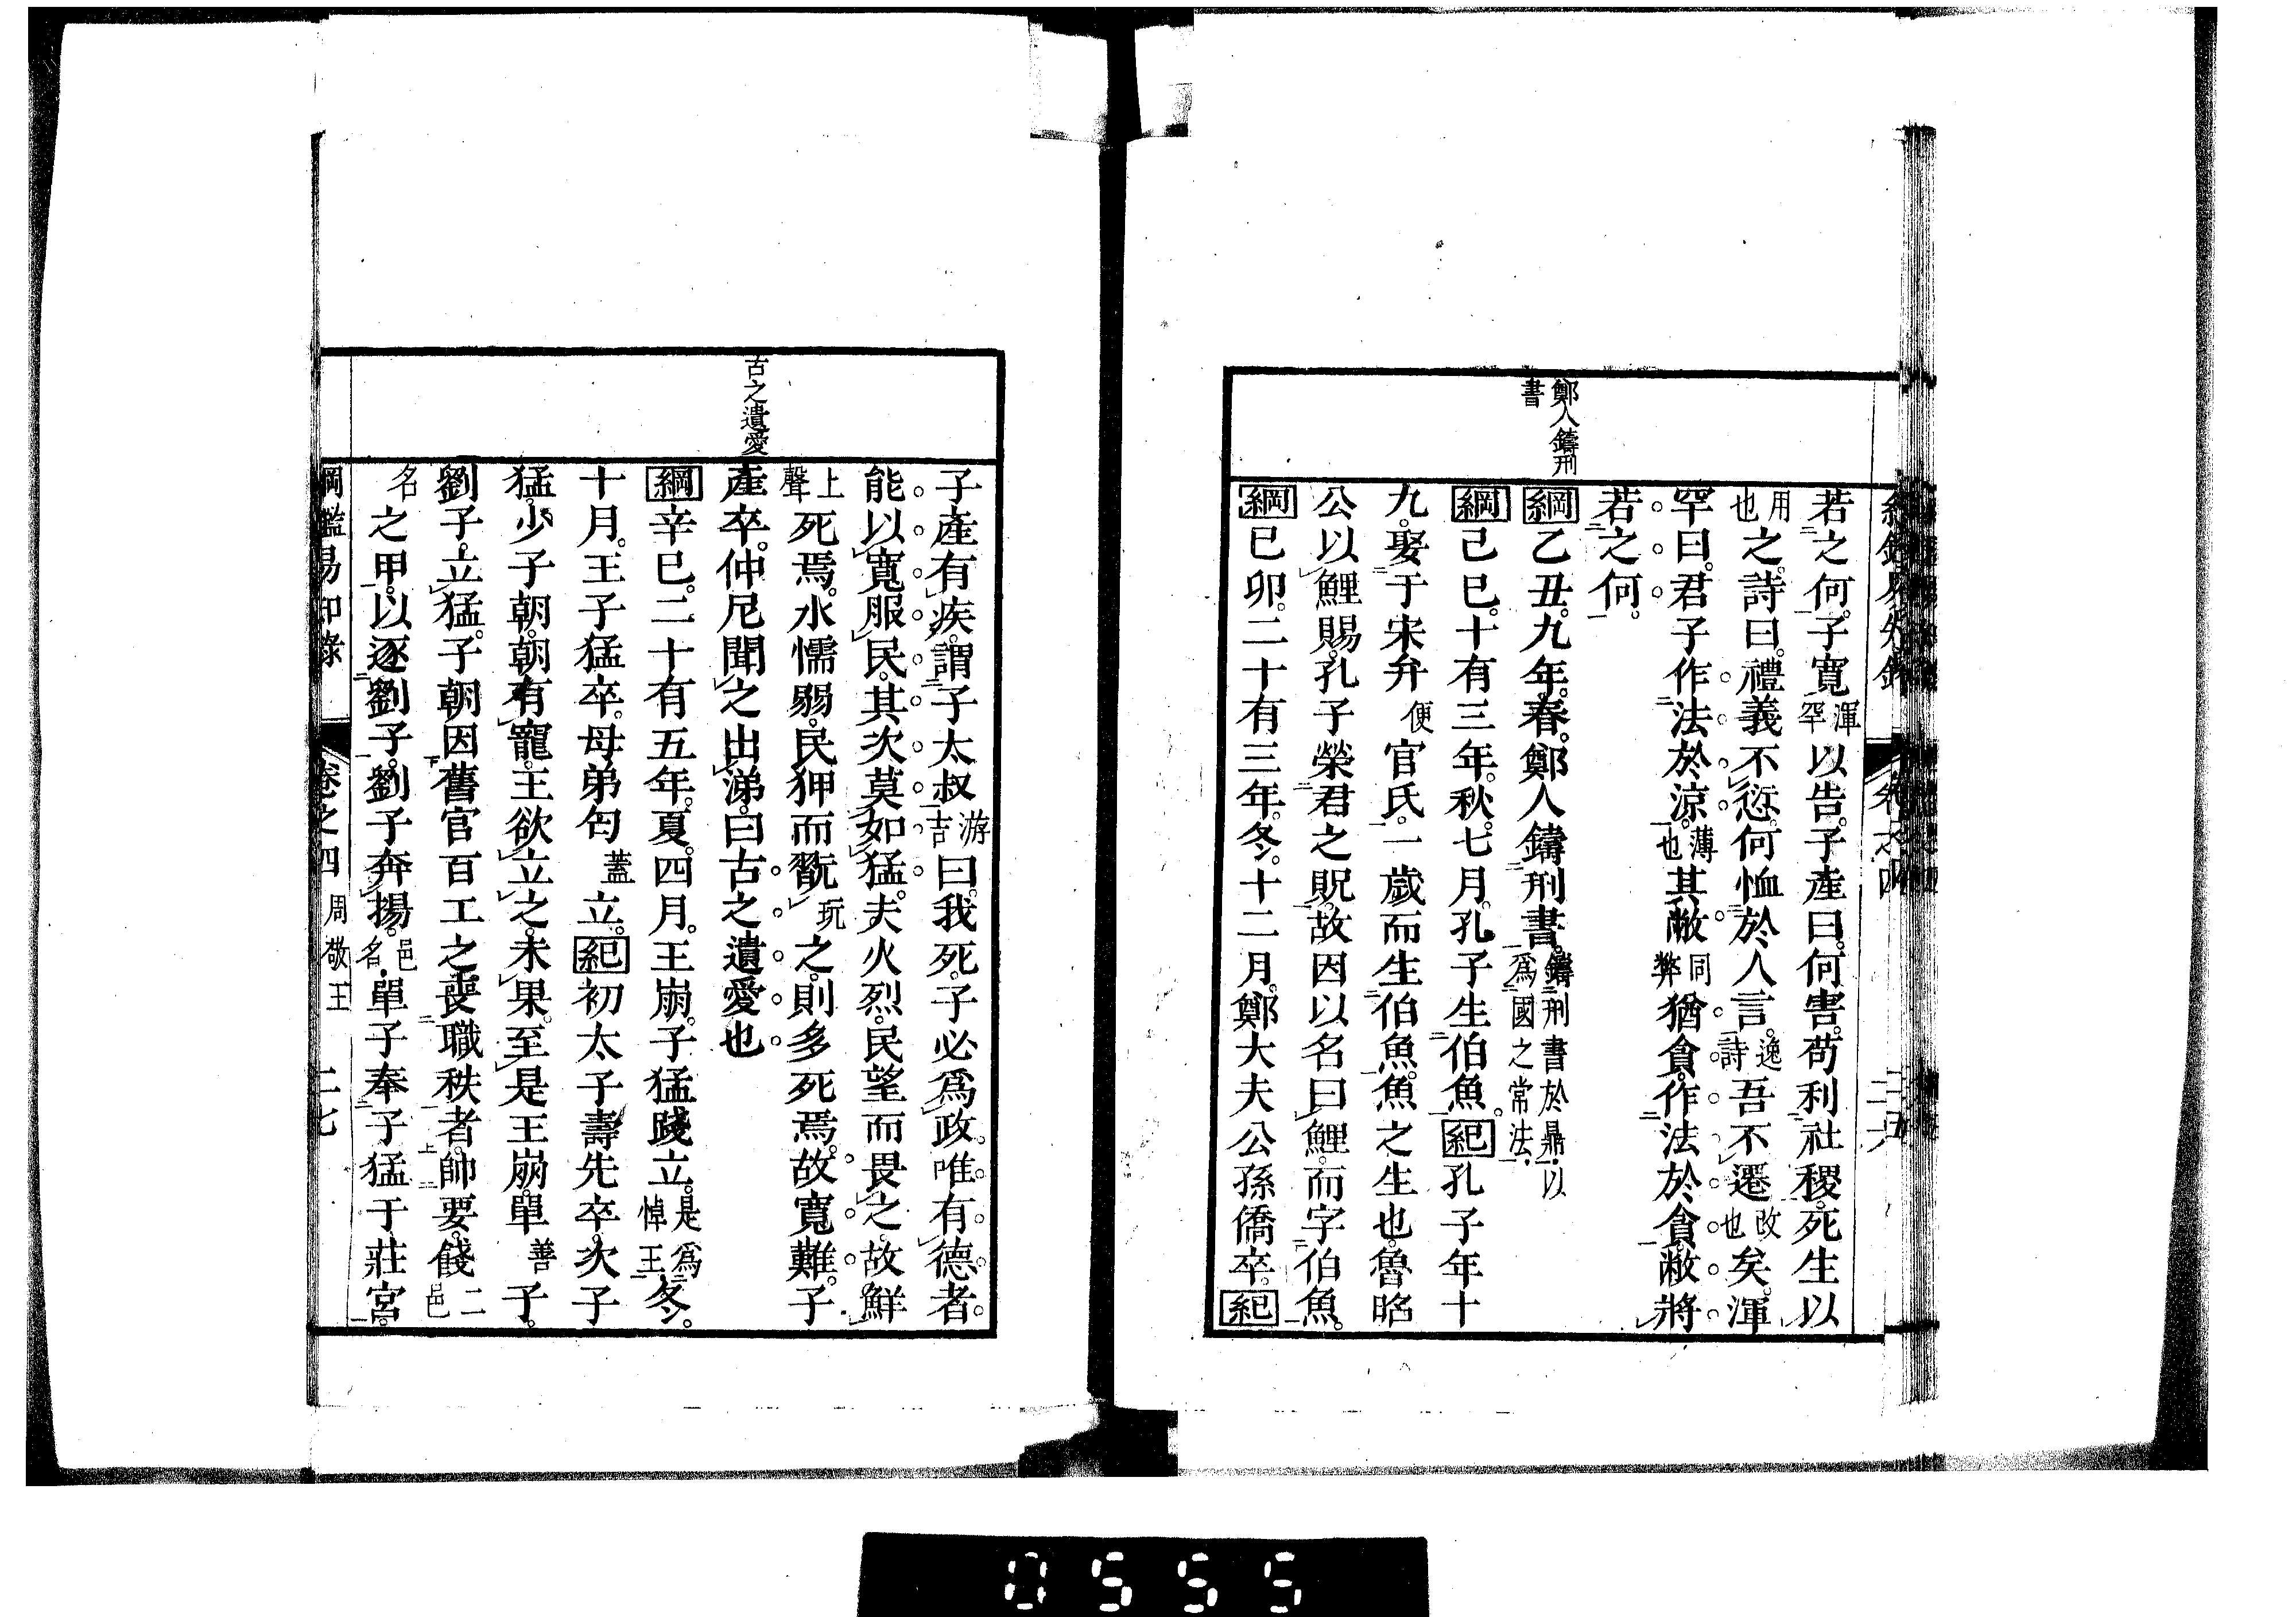 鄭人鑄刑
書
若之何。子寬渾罕以告。子產曰。何害。苟利社稷。死生以
用也之。詩曰。禮義不愆。何恤於人言。逸詩吾不遷改也矣。渾
罕曰。君子作法於涼。薄也其敝同弊猶貪。作法於貪。敝將
若之何。
綱乙丑。九年。春。鄭人鑄刑書。鑄刑書於鼎。以爲國之常法。
綱己巳。十有三年。秋。七月。孔子生伯魚。紀孔子年十
九。娶于宋幷便官氏。一歲而生伯魚。魚之生也。魯昭
公以鯉賜。孔子榮君之貺。故因以名曰鯉。而字伯魚。
綱已卯。二十有三年。冬。十二月。鄭大夫公孫僑卒。紀
古之遺愛
子產有疾。謂子太叔游吉曰。我死。子必爲政。唯有德者。
能以寬服民。其次莫如猛。夫火烈。民望而畏之。故鮮
上聲死焉。水懦弱。民狎而翫玩之。則多死焉。故寬難。子
產卒。仲尼聞之出涕。曰古之遺愛也
綱辛巳。二十有五年。夏。四月。王崩。子猛踐立。是爲悼王冬。
十月。王子猛卒。母弟匄蓋立。紀初太子壽先卒。次子
猛。少子朝。朝有寵。王欲立之。未果。至是王崩。單善子。
劉子。立猛。子朝因舊官百工之喪職秩者。帥要。餞二邑
名之甲。以逐劉子。劉子奔揚。邑名單子奉子猛于莊宮。
綱鑑易知錄 卷之四 周敬王 二七
0555